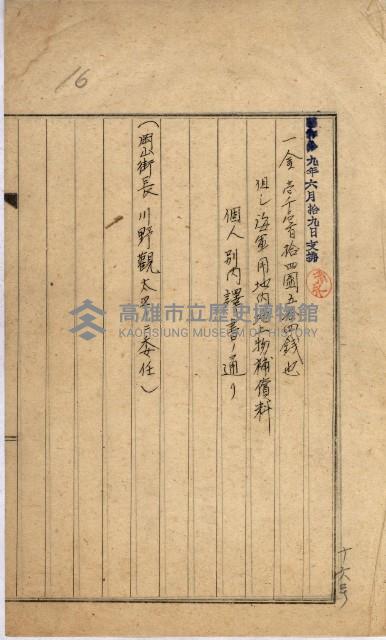 16
昭和 九年六月拾九日支拂
一金 壱千壱百拾四圓五拾四銭也
但し海軍用地内地上物補償料
個人別内譯書ノ通り
(岡山街長 川野觀太 ニ委任)
高雄市立歷史博物館
KAOHSIUNG MUSEUM OF HISTORY
十六号